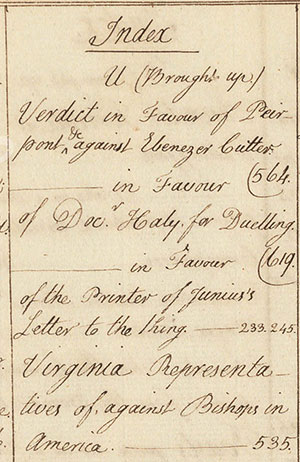 Index
U (Brought up)
Verdict in Favour of Peir-
pont &c against Ebenezer Cutter
——— in Favour (564.
of Doc.r Haly for Duelling.
——— in Favour (619.
of the Printer of Junius's
Letter to the King. —— 233.245.
Virginia Representa-
tives of, against Bishops in
America. —— 535.